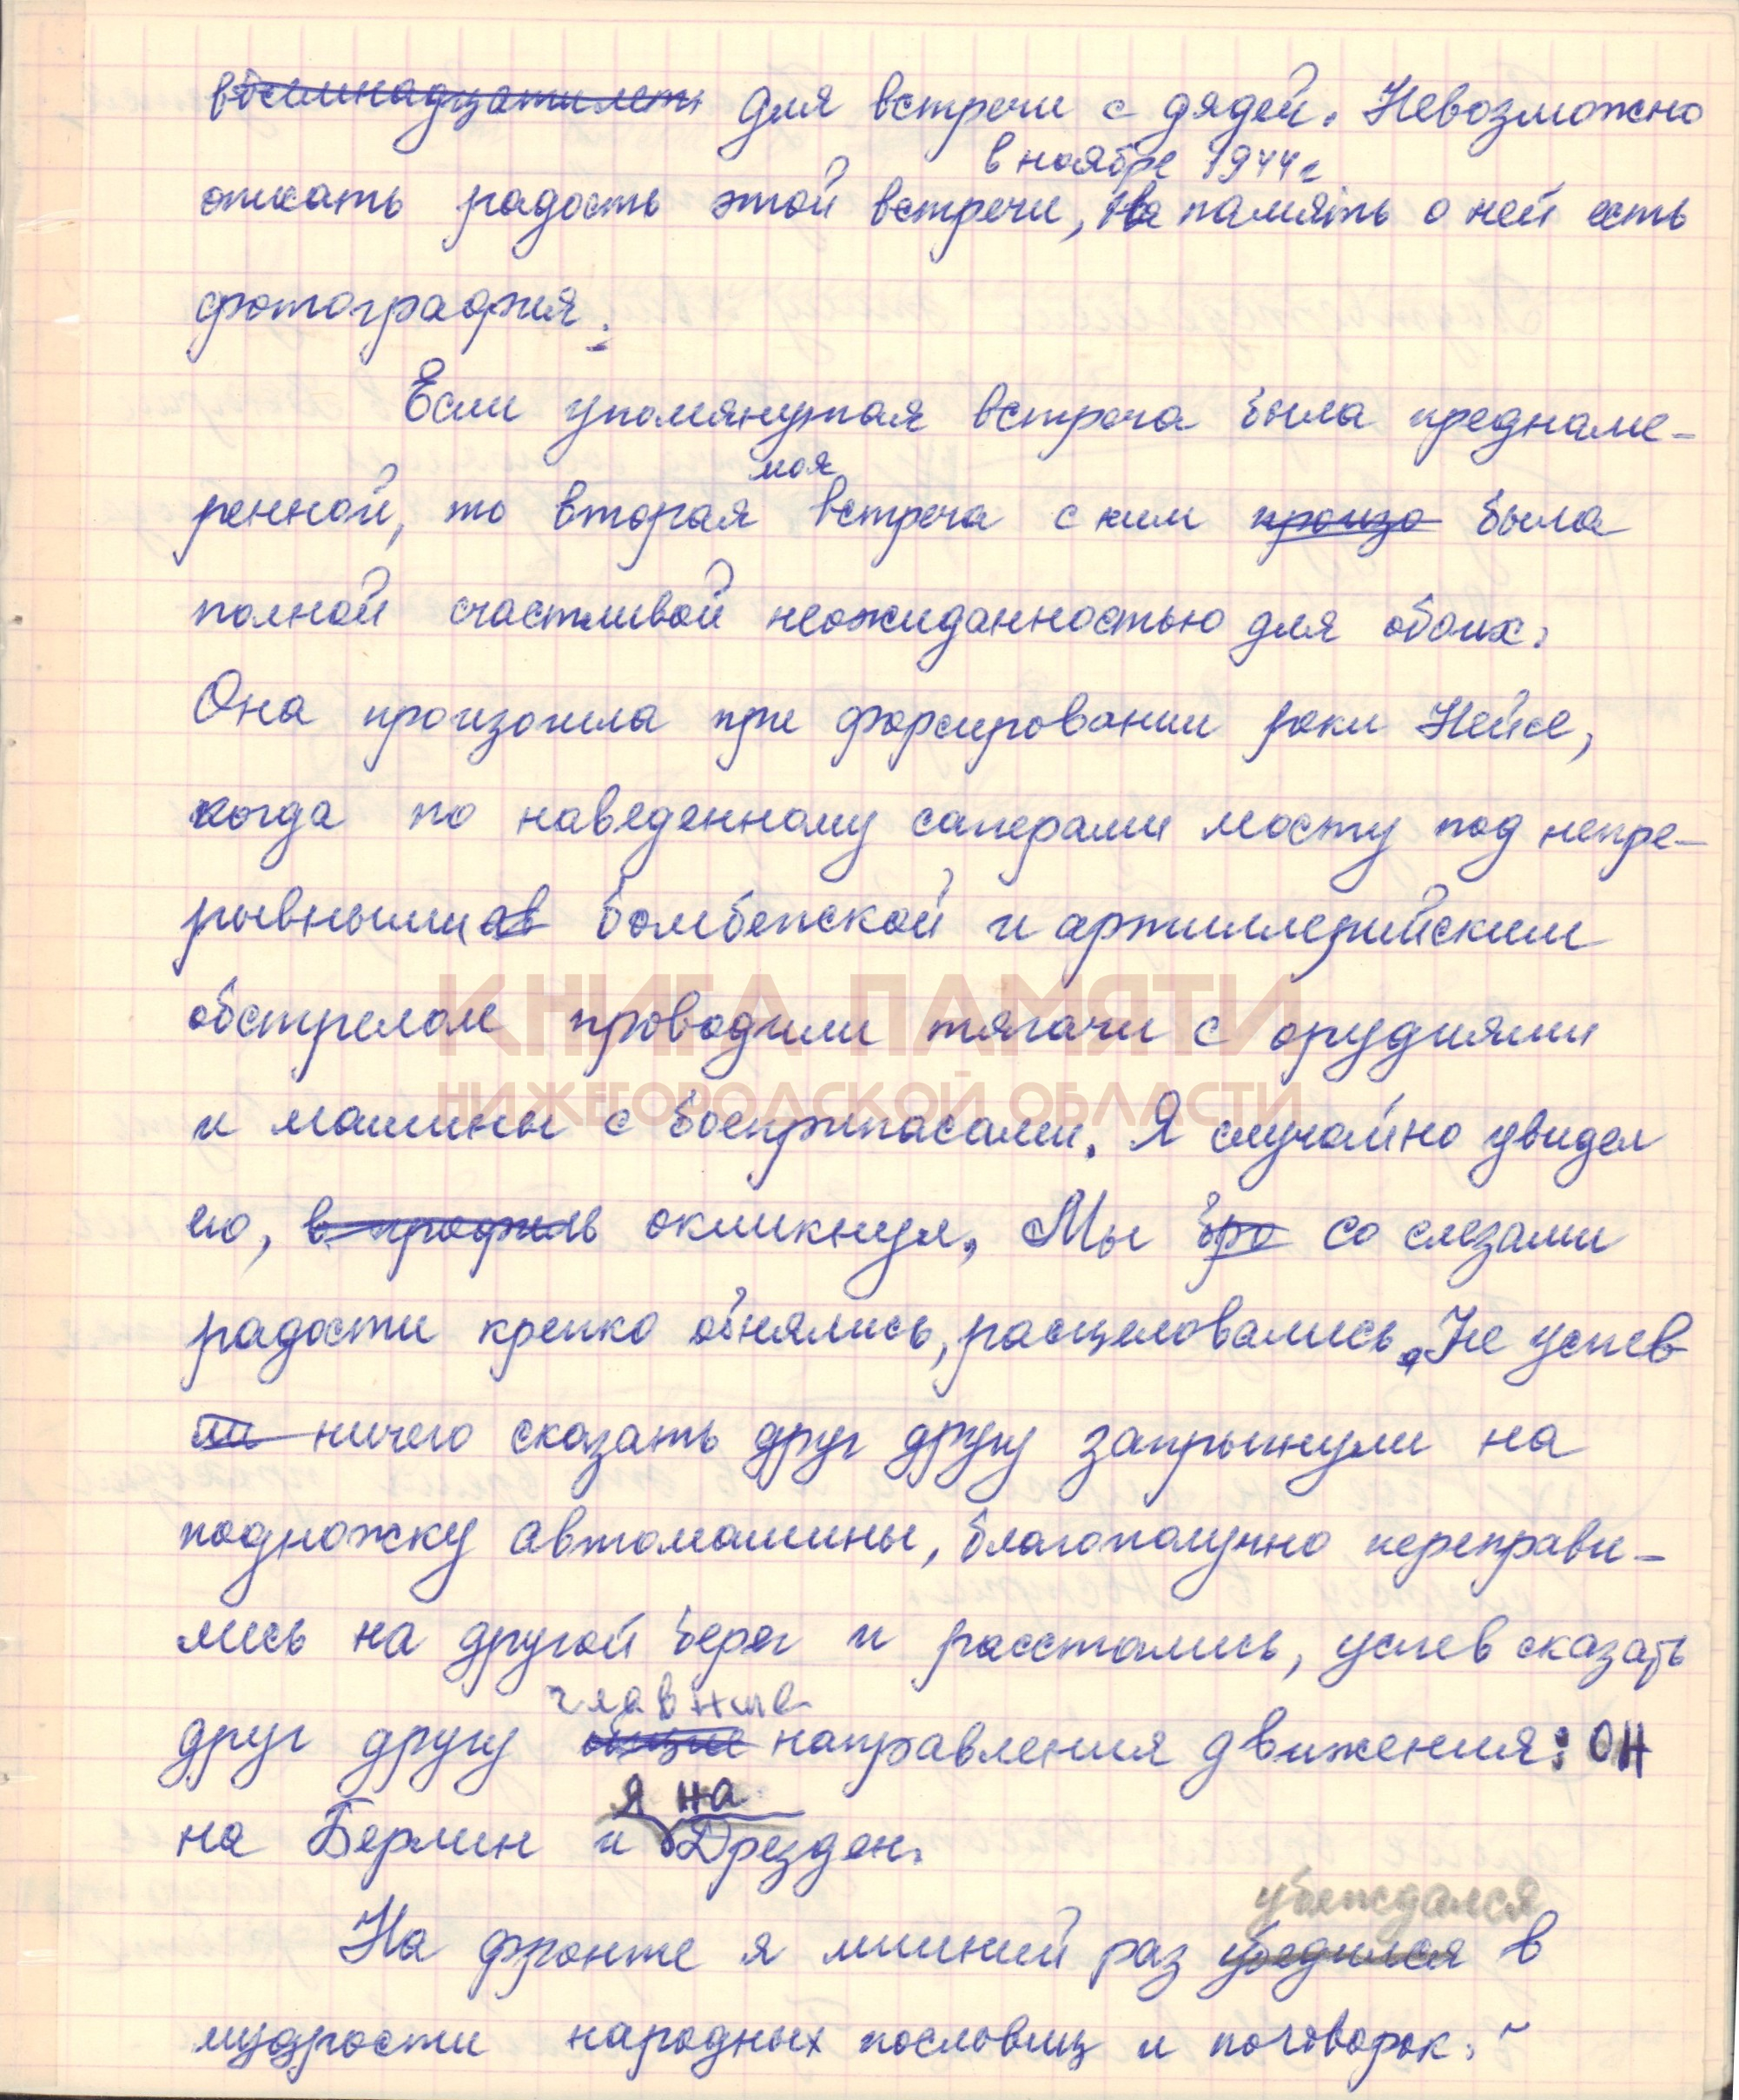 восемнадцатилетн для встречи с дядей. Невозможно
в ноябре 1944 г
описать радость этой встречи, На память о ней есть
фотография.
Если упомянутая встреча была преднаме-
моя
ренной, то вторая встреча с ним произо была
полной счастливой неожиданностью для обоих.
Она произошла при форсировании реки Нейсе,
когда по наведенному саперами мосту под непре-
рывными ав бомбежкой и артиллерийским
обстрелом проводили тягачи с орудиями
КНИГА ПАМЯТИ
НИЖЕГОРОДСКОЙ ОБЛАСТИ
и машины с боеприпасами. Я случайно увидел
его, в профиль окликнул, Мы бро со слезами
радости крепко обнялись, расцеловались. Не успев
ли ничего сказать друг другу запрыгнули на
подножку автомашины, благополучно переправи-
лись на другой берег и расстались, успев сказать
главные
друг другу общие направления движения: ОН
я на
на Берлин и Дрезден.
убеждался
На фронте я лишний раз убедился в
мудрости народных пословиц и поговорок.